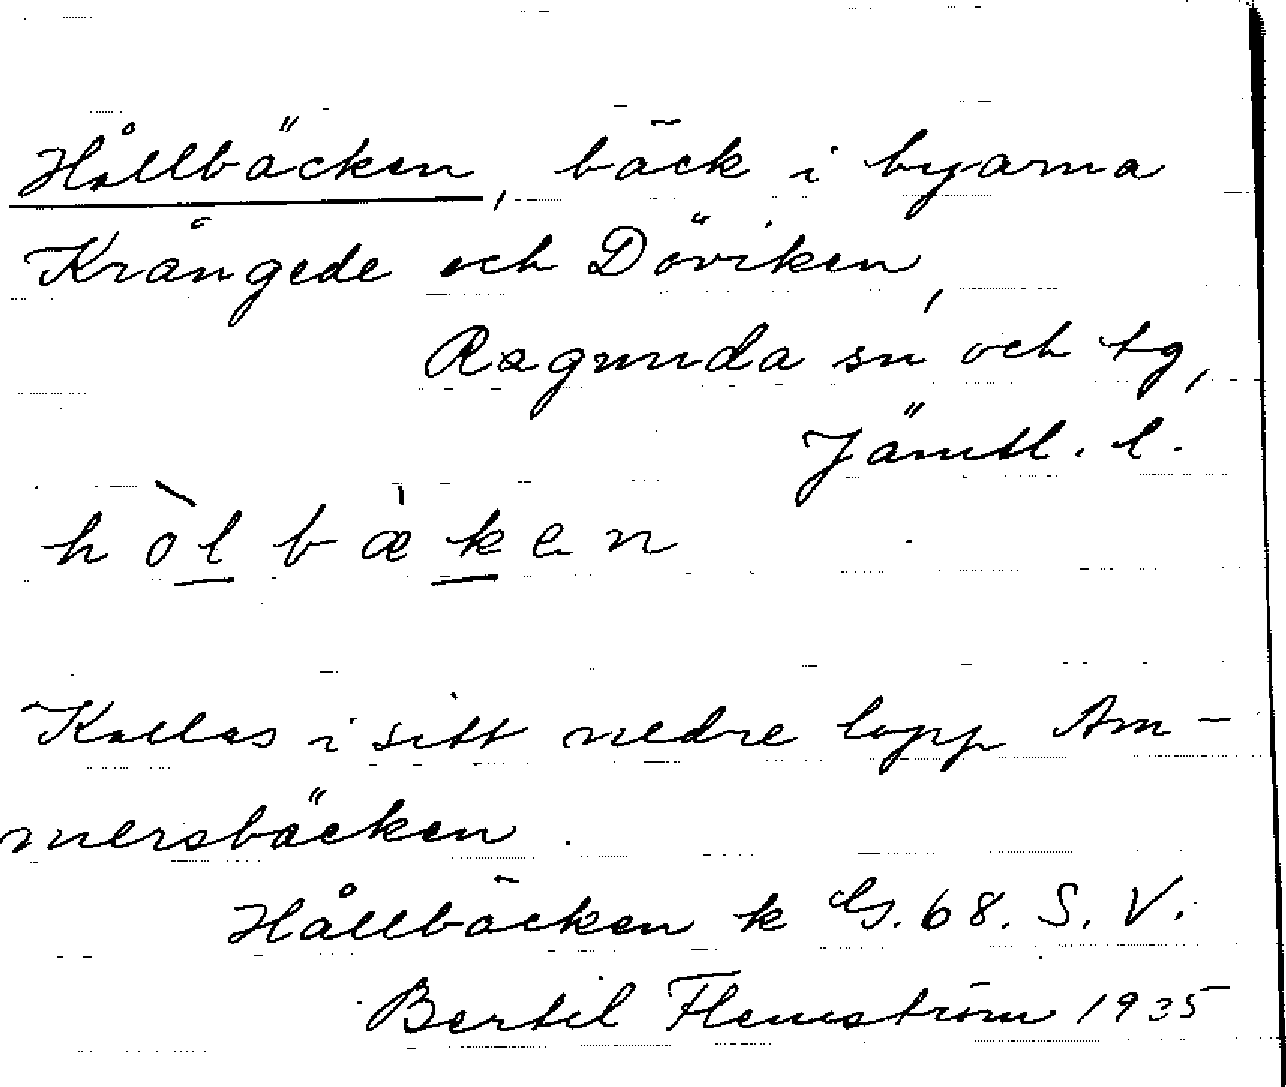 Hållbäcken, bäck i byarna
Krångede och Döviken,
Ragunda sn och tg,
Jämtl. l.
hòl bækен
Kallas i sitt nedre lopp Am-
mersbäcken.
Hållbäcken k Gs. 68. S. V.
Bertil Flemström 1935